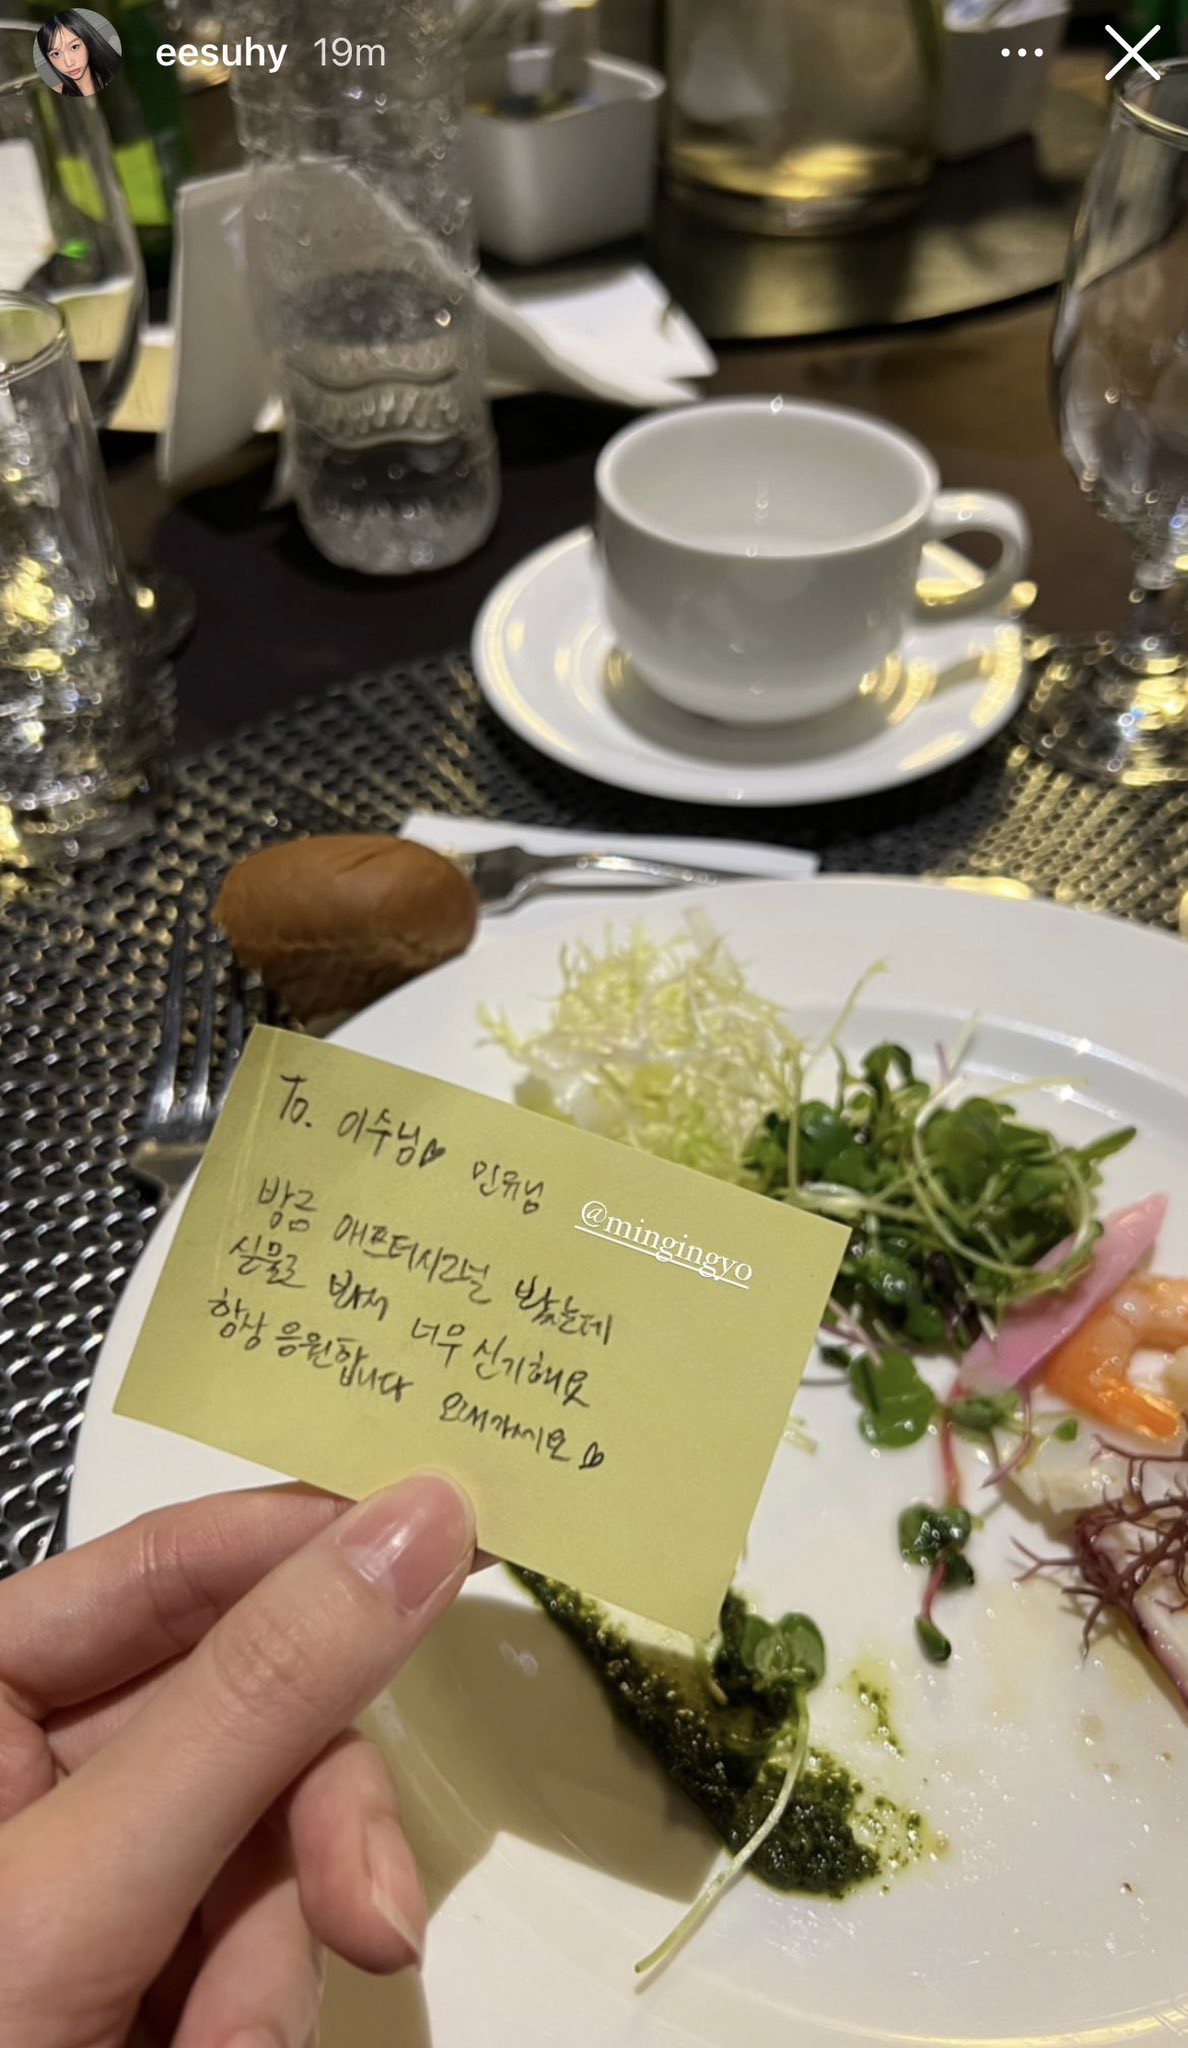 eesuhy 19m
To. 이수님♥ 민규님
@mingingyo
방금 애프터시그널 봤는데
실물로 봐서 너무 신기해요
항상 응원합니다 오래가세요